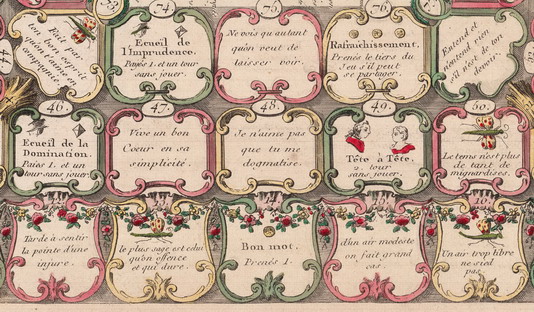 74.
75.
76.
Fais pas
Ecueil de
l'Imprudence.
Payés 1. et un tour
sans jouer.
Ne vois qu'autant
qu'on veut de
laisser voir.
Rafraichissement.
Prenés le tiers du
Jeu s'il peut
se partager.
Entend et
n'entend rien
s'il n'est de ton
devoir.
46.
47.
48.
49.
50.
Ecueil de la
Domination.
Païés 1. et un
tour sans jouer.
Vive un bon
Coeur en sa
simplicité.
Je n'aime pas
que tu me
dogmatise.
Tête à Tête.
2. tour
sans jouer.
Le tems n'est plus
de tant de
mignardises.
Tarde à sentir
la pointe d'une
injure.
le plus sage est celui
qu'on offence
et qui dure.
Bon mot.
Prenés 1.
d'un air modeste
on fait grand
cas.
Un air trop libre
ne sied
pas.